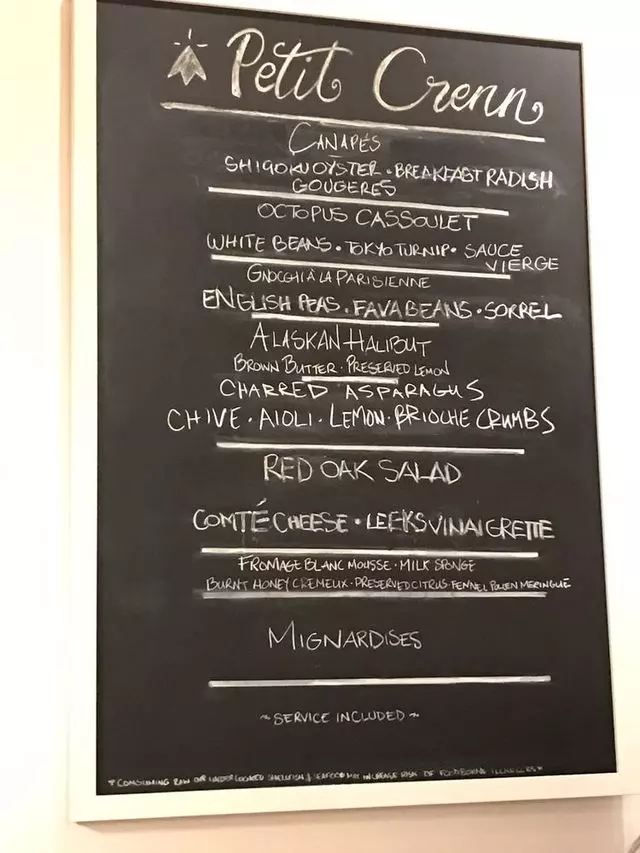 Petit Crenn
CANAPÉS
SHIGOKU OYSTER · BREAKFAST RADISH
GOUGERES
OCTOPUS CASSOULET
WHITE BEANS · TOKYO TURNIP · SAUCE
VIERGE
GNOCCHI À LA PARISIENNE
ENGLISH PEAS · FAVA BEANS · SORREL
ALASKAN HALIBUT
BROWN BUTTER · PRESERVED LEMON
CHARRED ASPARAGUS
CHIVE · AIOLI · LEMON · BRIOCHE CRUMBS
RED OAK SALAD
COMTÉ CHEESE · LEEKS VINAIGRETTE
FROMAGE BLANC MOUSSE · MILK SPONGE
BURNT HONEY CREMEUX · PRESERVED CITRUS · FENNEL POLLEN MERINGUE
MIGNARDISES
~ SERVICE INCLUDED ~
* CONSUMING RAW OR UNDERCOOKED SHELLFISH & SEAFOOD MAY INCREASE RISK OF FOODBORNE ILLNESSES *